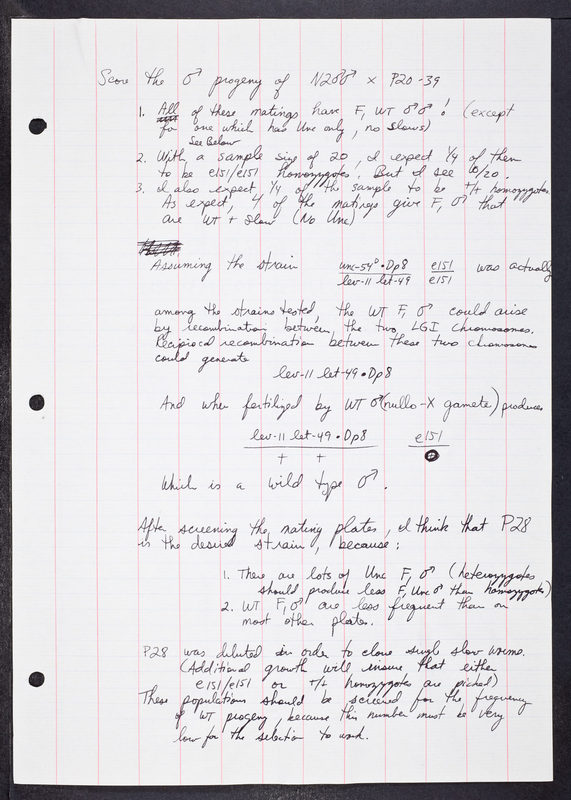 Score the ♂ progeny of N2♂♂ × P20-39
1. All of these matings have F, WT ♂♂! (except
for one which has Unc only, no slows)
See Below
2. With a sample size of 20, I expect 1/4 of them
to be e151/e151 homozygotes. But I see 0/20.
3. I also expect 1/4 of the sample to be +/+ homozygotes.
As expect, 4 of the matings give F, ♂ that
are WT + slow (No Unc)
Assuming the strain unc-54⁰•Dp8 e151 was actually
lev-11 let-49 e151
among the strains tested, the WT F, ♂ could arise
by recombination between the two LGI chromosomes.
Reciprocal recombination between these two chromosomes
could generate
lev-11 let-49•Dp8
And when fertilized by WT ♂(nullo-X gamete) produces
lev-11 let-49•Dp8 e151
+ + O
Which is a wild type ♂.
After screening the mating plates, I think that P28
is the desired strain, because:
1. There are lots of Unc F, ♂ (heterozygotes
should produce less F, Unc ♂ than homozygotes)
2. WT F, ♂ are less frequent than on
most other plates.
P28 was diluted in order to clone single slow worms.
(Additional growth will insure that either
e151/e151 or +/+ homozygotes are picked)
These populations should be screened for the frequency
of WT progeny, because this number must be very
low for the selection to work.